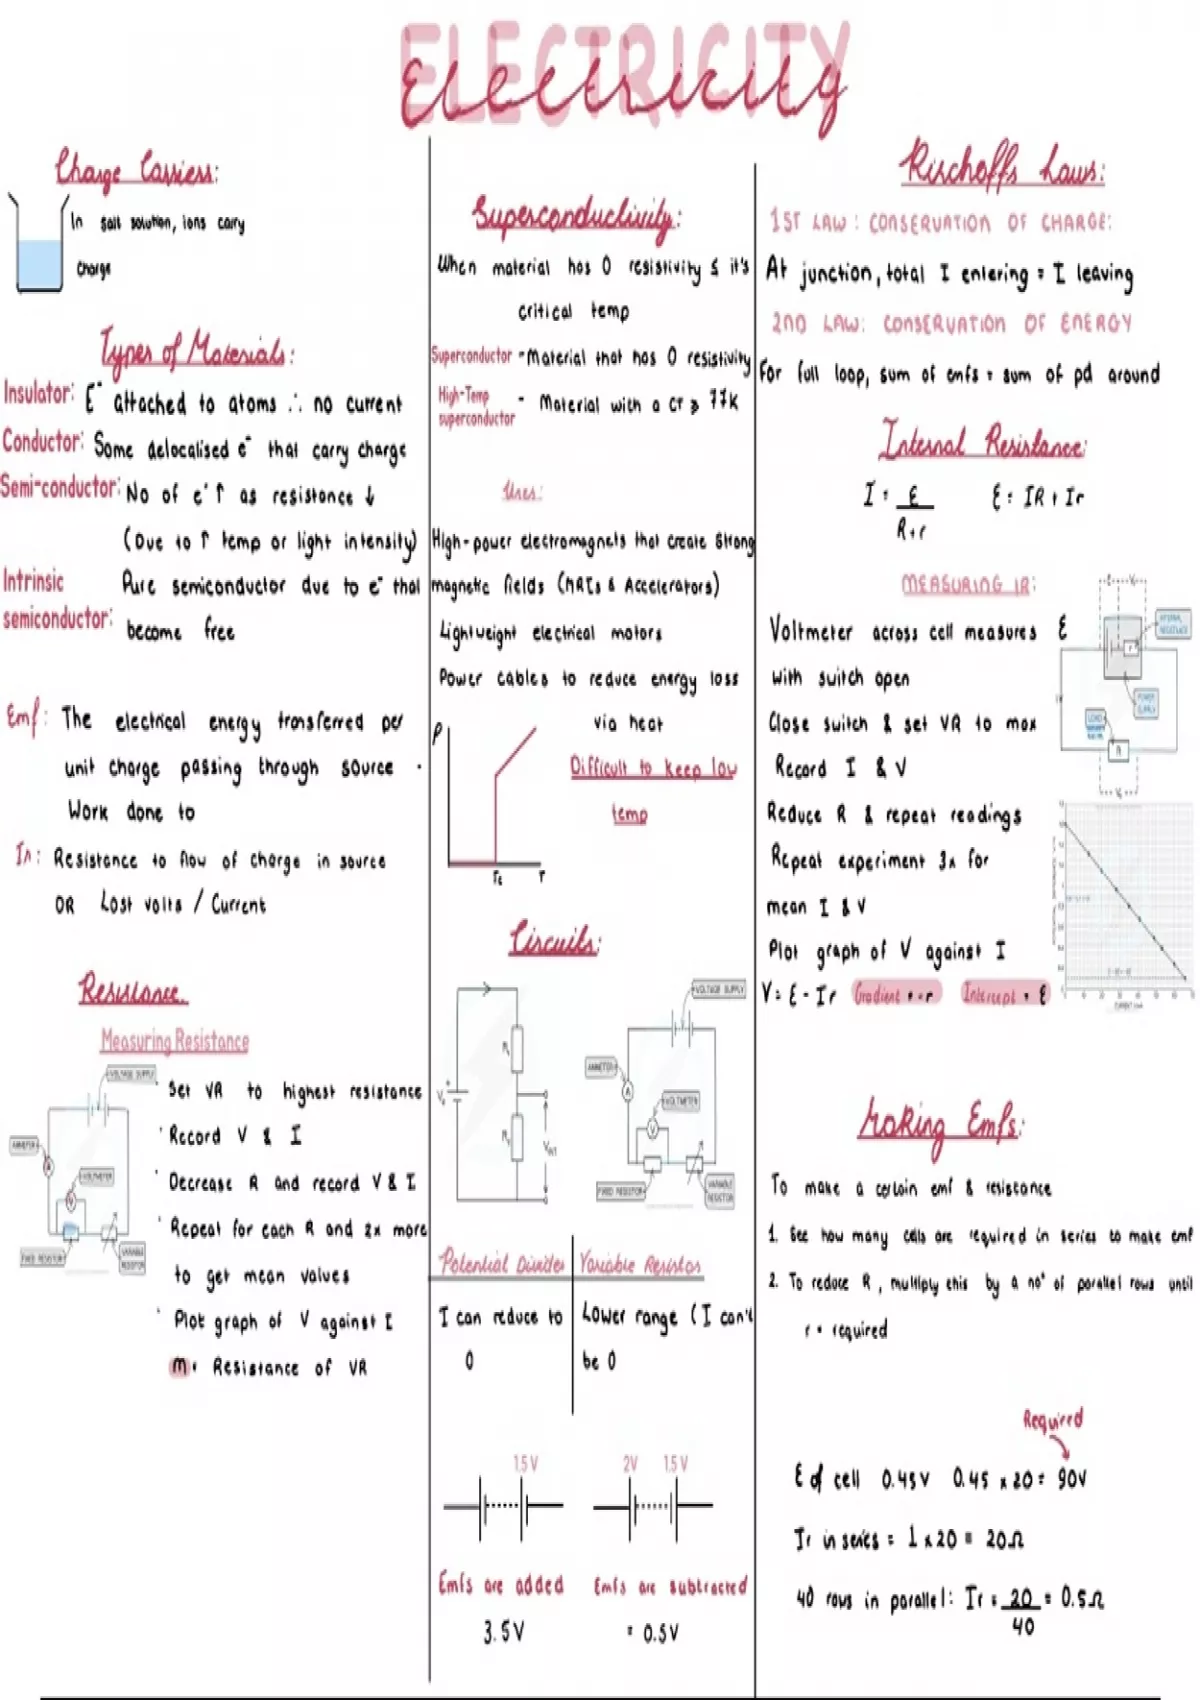 ELECTRICITY
Electricity
Charge Carriers:
In salt solution, ions carry
charge
Types of Materials:
Insulator: E⁻ attached to atoms ∴ no current
Conductor: Some delocalised e⁻ that carry charge
Semi-conductor: No of e⁻ ↑ as resistance ↓
(Due to ↑ temp or light intensity)
Intrinsic
semiconductor:
Pure semiconductor due to e⁻ that
become free
Emf: The electrical energy transferred per
unit charge passing through source -
Work done to
Ir: Resistance to flow of charge in source
OR Lost volts / Current
Resistance
Measuring Resistance
VOLTAGE SUPPLY
AMMETER
A
VOLTMETER
V
FIXED RESISTOR
VARIABLE
RESISTOR
· Set VR to highest resistance
· Record V & I
· Decrease R and record V & I
· Repeat for each R and 2x more
to get mean values
· Plot graph of V against I
m = Resistance of VR
Superconductivity:
When material has 0 resistivity ≤ it's
critical temp
Superconductor - Material that has 0 resistivity
High-Temp
superconductor
- Material with a CT ≥ 77K
Uses:
High-power electromagnets that create strong
magnetic fields (MRIs & Accelerators)
Lightweight electrical motors
Power cables to reduce energy loss
via heat
ρ
Tc
T
Difficult to keep low
temp
Circuits:
R₁
R₂
VOLTAGE SUPPLY
AMMETER
A
VOLTMETER
V
FIXED RESISTOR
VARIABLE
RESISTOR
Potential Divider
I can reduce to
0
Variable Resistor
Lower range (I can't
be 0
1.5 V
2V 1.5 V
Emfs are added
3.5V
Emfs are subtracted
= 0.5V
Kirchoffs Laws:
1ST LAW: CONSERVATION OF CHARGE:
At junction, total I entering = I leaving
2ND LAW: CONSERVATION OF ENERGY
For full loop, sum of emfs = sum of pd around
Internal Resistance:
I = ε / R+r
ε = IR + Ir
MEASURING IR:
Voltmeter across cell measures ε
with switch open
Close switch & set VR to max
Record I & V
Reduce R & repeat readings
Repeat experiment 3x for
mean I & V
Plot graph of V against I
V = ε - Ir Gradient = -r Intercept = ε
INTERNAL
RESISTANCE
r
POWER
SUPPLY
LOAD
R
Making Emfs:
To make a certain emf & resistance
1. See how many cells are required in series to make emf
2. To reduce R, multiply this by a noº of parallel rows until
r = required
Required
ε of cell 0.45V 0.45 x 20 = 90V
Ir in series = 1 x 20 = 20Ω
40 rows in parallel: Ir = 20 / 40 = 0.5Ω